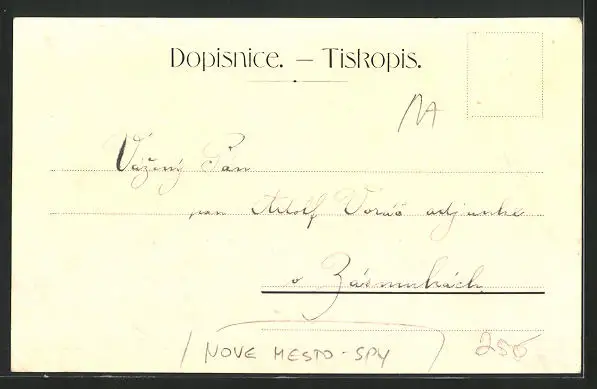 Dopisnice. — Tiskopis.
Vážený Pán
pan Adolf Voráč adjunkt
v Zásmukách
NOVE MESTO - SPY
250